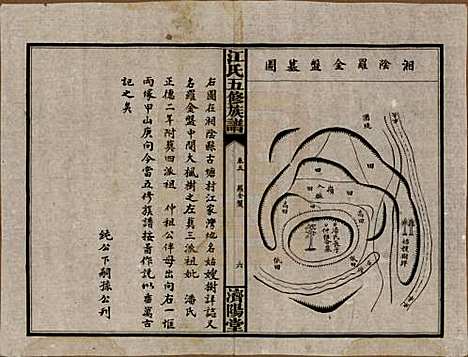 湘陰羅金盤墓圖
江氏五修族譜
卷五
羅金盤
六
濟陽堂
右圖在湘陰縣古塘村江家灣地名姑嫂樹詳誌又
名羅金盤中間大楓樹之左葬三派祖妣 潘氏
正德二年附葬四派祖 仲祖公伴母出向右一框
兩塚甲山庚向今當五修族譜按著作說以垂萬古
記之矣
純公下嗣據公刊
田
田
田
依田
姑嫂樹坪